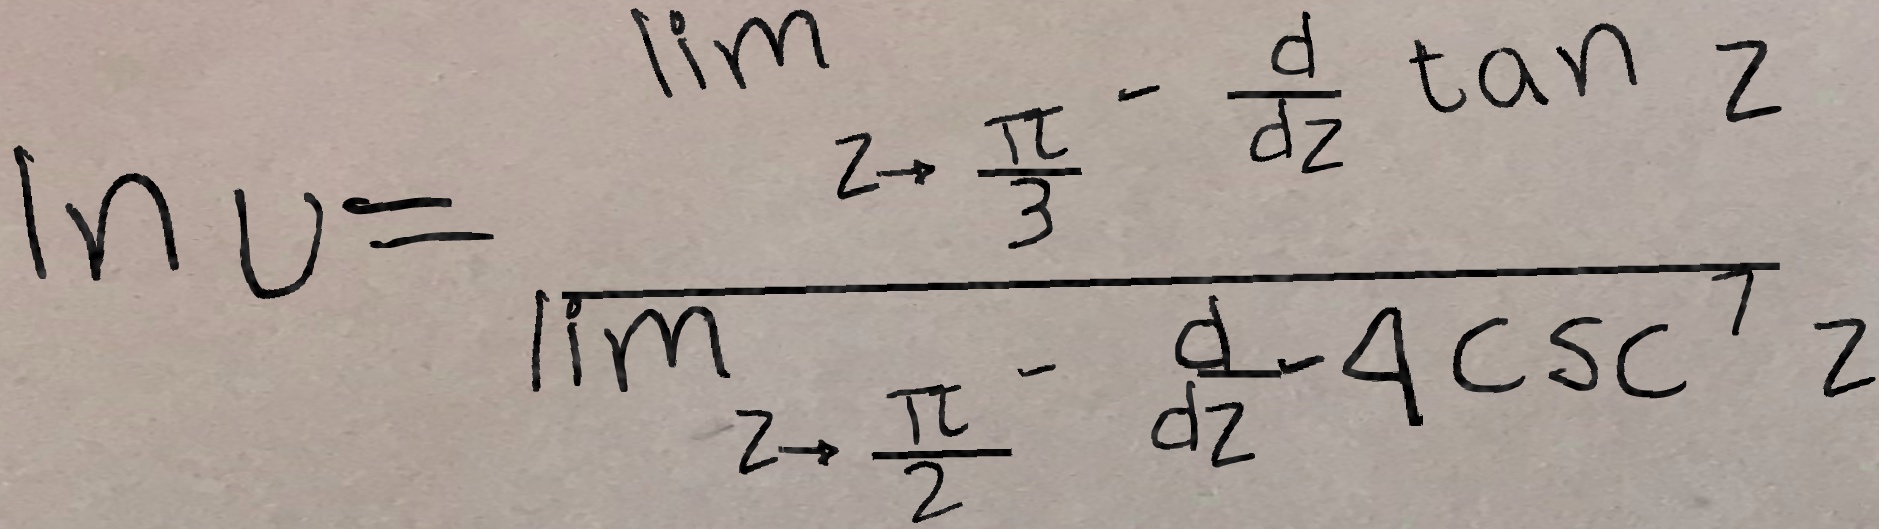 \ln U = \frac{\lim_{z \to \frac{\pi}{3}^-} \frac{d}{dz} \tan z}{\lim_{z \to \frac{\pi}{2}^-} \frac{d}{dz} -4 \csc^7 z}